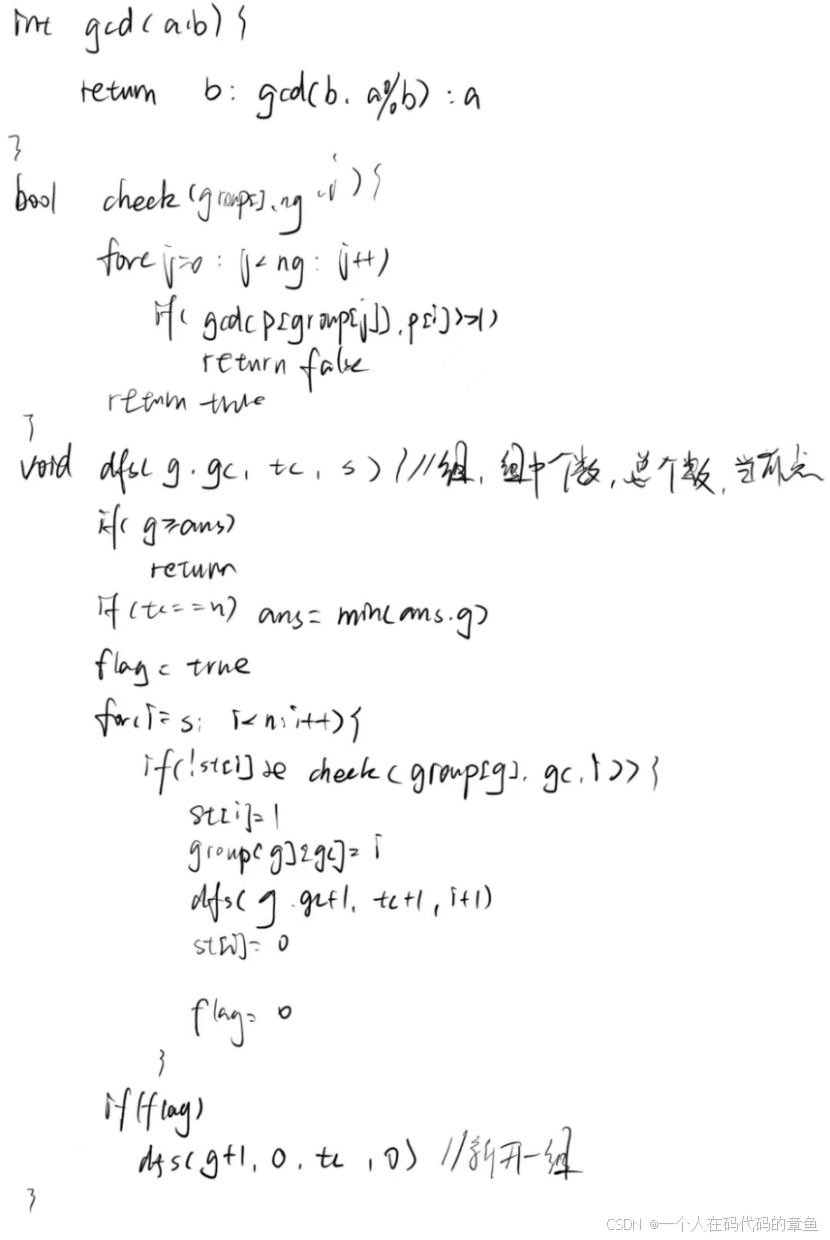 int gcd(a,b){
return b: gcd(b, a%b) : a
}
bool check(group[], ng, i){
for(j=0 : j<ng : j++)
if( gcd(p[group[j]], p[i])>1)
return false
return true
}
void dfs( g, gc, tc, s) { //组, 组中个数, 总个数, 当前点
if( g≥ans)
return
if(tc==n) ans= min(ans,g)
flag= true
for(i= s; i<n; i++){
if(!st[i] && check(group[g], gc, i)){
st[i]=1
group[g][gc]= i
dfs( g, gc+1, tc+1, i+1)
st[i]= 0
flag= 0
}
if(flag)
dfs(g+1, 0, tc ,0) //新开一组
}
CSDN @一个人在码代码的章鱼